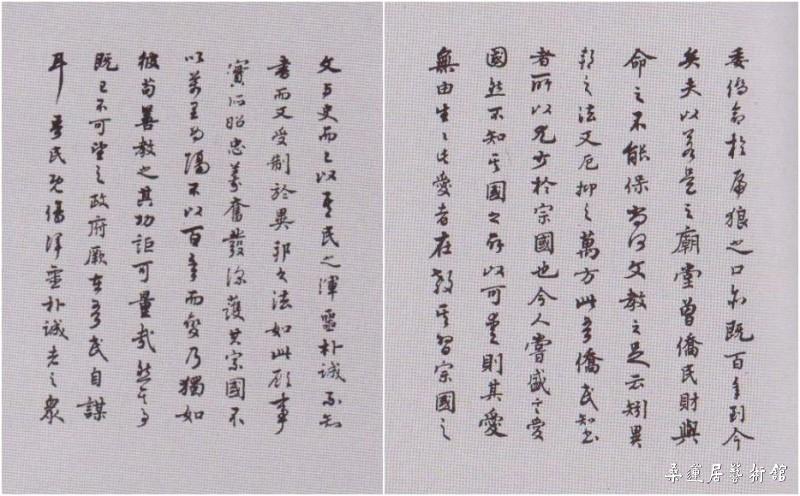 委僑命於虎狼之口亦既百年到今
矣夫以若是之廟堂曾僑民財與
命之不能保尚何文教之足云矧異
邦之法又厄抑之萬方此吾僑民知書
者所以尤少於宗國也今人嘗盛言愛
國然不知其國之所以可愛則其愛
無由生生其愛者在教其習宗國之
文與史而已以吾民之渾噩朴誠不知
書而又受制於異邦之法如此顧事
實所昭忠義奮發深護其宗國不
以萬里為隔不以百年而變乃獨如
彼苟善教之其功詎可量哉然其事
既已不可望之政府厥在吾民自謀
耳吾民既渾噩朴誠者之眾
桑蓮居藝術館